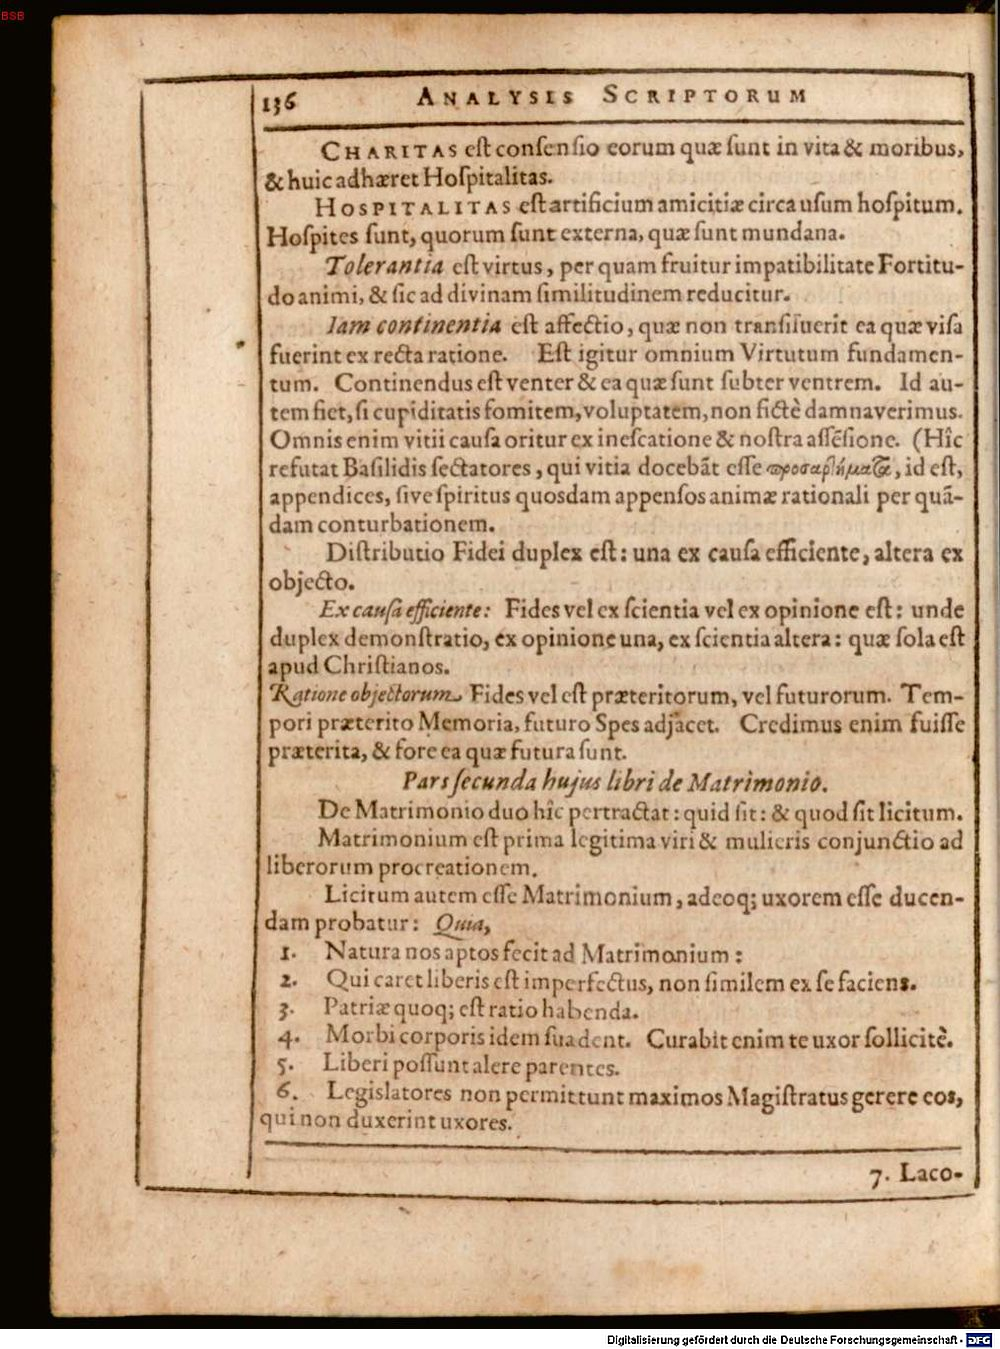 BSB
136 ANALYSIS SCRIPTORUM
CHARITAS eſt conſenſio eorum quæ ſunt in vita & moribus,
& huic adhæret Hoſpitalitas.
HOSPITALITAS eſt artificium amicitiæ circa uſum hoſpitum.
Hoſpites ſunt, quorum ſunt externa, quæ ſunt mundana.
Tolerantia eſt virtus, per quam fruitur impatibilitate Fortitu-
do animi, & ſic ad divinam ſimilitudinem reducitur.
Iam continentia eſt affectio, quæ non tranſiluerit ea quæ viſa
fuerint ex recta ratione. Eſt igitur omnium Virtutum fundamen-
tum. Continendus eſt venter & ea quæ ſunt ſubter ventrem. Id au-
tem fiet, ſi cupiditatis fomitem, voluptatem, non fictè damnaverimus.
Omnis enim vitii cauſa oritur ex ineſcatione & noſtra aſſēſione. (Hîc
refutat Baſilidis ſectatores, qui vitia docebāt eſſe προσαρτήματα, id eſt,
appendices, ſive ſpiritus quosdam appenſos animæ rationali per quā-
dam conturbationem.
Diſtributio Fidei duplex eſt: una ex cauſa efficiente, altera ex
objecto.
Ex cauſa efficiente: Fides vel ex ſcientia vel ex opinione eſt: unde
duplex demonſtratio, ex opinione una, ex ſcientia altera: quæ ſola eſt
apud Chriſtianos.
Ratione objectorum Fides vel eſt præteritorum, vel futurorum. Tem-
pori præterito Memoria, futuro Spes adjacet. Credimus enim fuiſſe
præterita, & fore ea quæ futura ſunt.
Pars ſecunda hujus libri de Matrimonio.
De Matrimonio duo hîc pertractat: quid ſit: & quod ſit licitum.
Matrimonium eſt prima legitima viri & mulieris conjunctio ad
liberorum procreationem.
Licitum autem eſſe Matrimonium, adeoq; uxorem eſſe ducen-
dam probatur: Quia,
1. Natura nos aptos fecit ad Matrimonium:
2. Qui caret liberis eſt imperfectus, non ſimilem ex ſe faciens.
3. Patriæ quoq; eſt ratio habenda.
4. Morbi corporis idem ſuadent. Curabit enim te uxor ſollicitè.
5. Liberi poſſunt alere parentes.
6. Legislatores non permittunt maximos Magiſtratus gerere eos,
qui non duxerint uxores.
7. Laco-
Digitalisierung gefördert durch die Deutsche Forschungsgemeinschaft - DFG